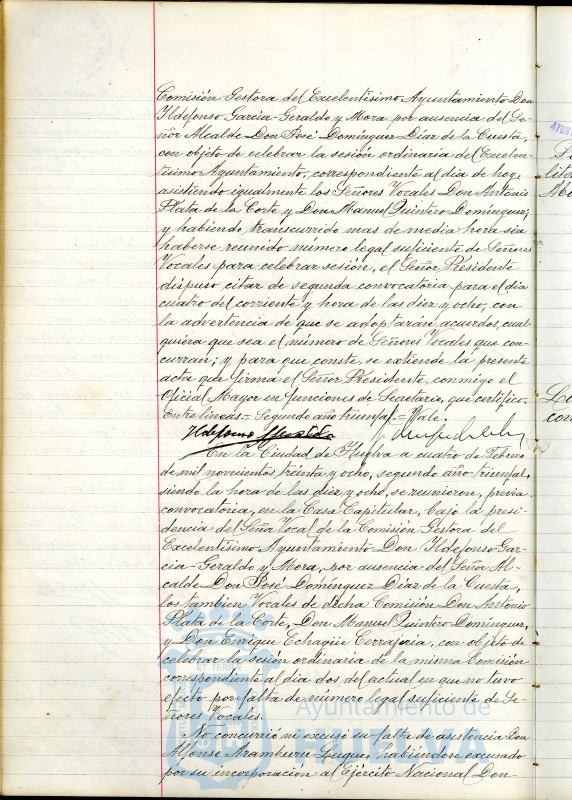 Comisión Gestora del Excelentísimo Ayuntamiento Don
Ildefonso Garcia-Geraldo y Mora por ausencia del Se-
ñor Alcalde Don José Domínguez Diaz de la Cuesta,
con objeto de celebrar la sesión ordinaria del Excelen-
tísimo Ayuntamiento, correspondiente al dia de hoy,
asistiendo igualmente los Señores Vocales Don Antonio
Plata de la Corte y Don Manuel Quintero Dominguez;
y habiendo transcurrido mas de media hora sin
haberse reunido número legal suficiente de Señores
Vocales para celebrar sesión, el Señor Presidente
dispuso citar de segunda convocatoria para el dia
cuatro del corriente y hora de las diez y ocho, con
la advertencia de que se adoptarán acuerdos, cual
quiera que sea el número de Señores Vocales que con-
curran; y para que conste, se extiende la presente
acta que firma el Señor Presidente, conmigo el
Oficial Mayor en funciones de Secretario, que certifico.
Entre lineas.- Segundo año triunfal.- Vale.
Ildefonso
En la Ciudad de Huelva a cuatro de Febrero
de mil novecientos treinta y ocho, segundo año triunfal,
siendo la hora de las diez y ocho, se reunieron, previa
convocatoria, en la Casa Capitular, bajo la presi-
dencia del Señor Vocal de la Comisión Gestora del
Excelentísimo Ayuntamiento Don Ildefonso Gar-
cia-Geraldo y Mora, por ausencia del Señor Al-
calde Don José Domínguez Diaz de la Cuesta,
los tambien Vocales de dicha Comisión Don Antonio
Plata de la Corte, Don Manuel Quintero Dominguez,
y Don Enrique Echagüe Cerrajería, con objeto de
celebrar la sesión ordinaria de la misma Comisión
correspondiente al dia dos del actual en que no tuvo
efecto por falta de número legal suficiente de Se-
ñores Vocales.
No concurrió ni excusó su falta de asistencia Don
Alfonso Aramburu Luque, habiendose excusado
por su incorporación al Ejército Nacional Don
Ayuntamiento de
HUELVA